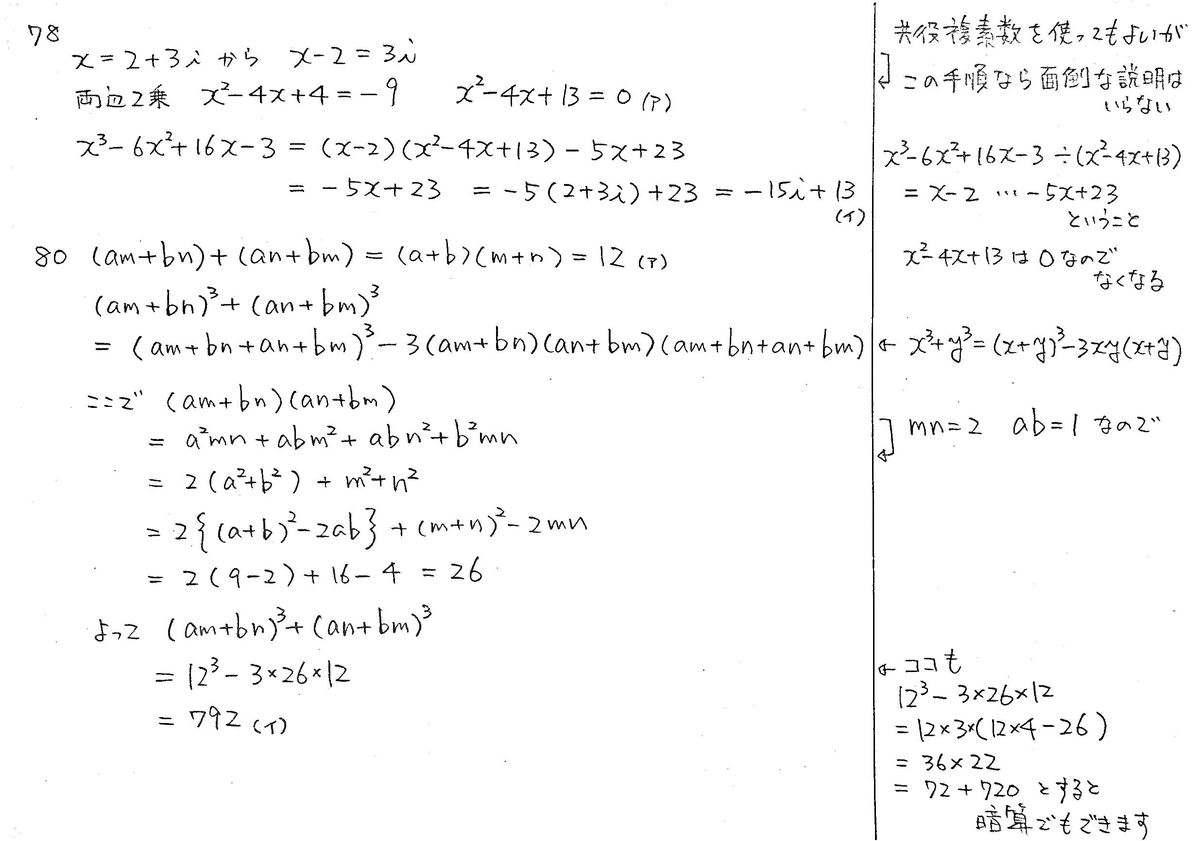 78
x=2+3i から x-2=3i
両辺2乗 x²-4x+4=-9 x²-4x+13=0 (ア)
x³-6x²+16x-3 = (x-2)(x²-4x+13)-5x+23
= -5x+23 = -5(2+3i)+23 = -15i+13
(イ)
80 (am+bn)+(an+bm)=(a+b)(m+n)=12 (ア)
(am+bn)³+(an+bm)³
= (am+bn+an+bm)³-3(am+bn)(an+bm)(am+bn+an+bm)
ここで (am+bn)(an+bm)
= a²mn+abm²+abn²+b²mn
= 2(a²+b²)+m²+n²
= 2{(a+b)²-2ab}+(m+n)²-2mn
= 2(9-2)+16-4 = 26
よって (am+bn)³+(an+bm)³
= 12³-3×26×12
= 792 (イ)
共役複素数を使ってもよいが
この手順なら面倒な説明は
いらない
x³-6x²+16x-3÷(x²-4x+13)
= x-2 … -5x+23
ということ
x²-4x+13は0なので
なくなる
← x³+y³=(x+y)³-3xy(x+y)
mn=2 ab=1 なので
← ココも
12³-3×26×12
=12×3×(12×4-26)
= 36×22
= 72+720 とすると
暗算でもできます